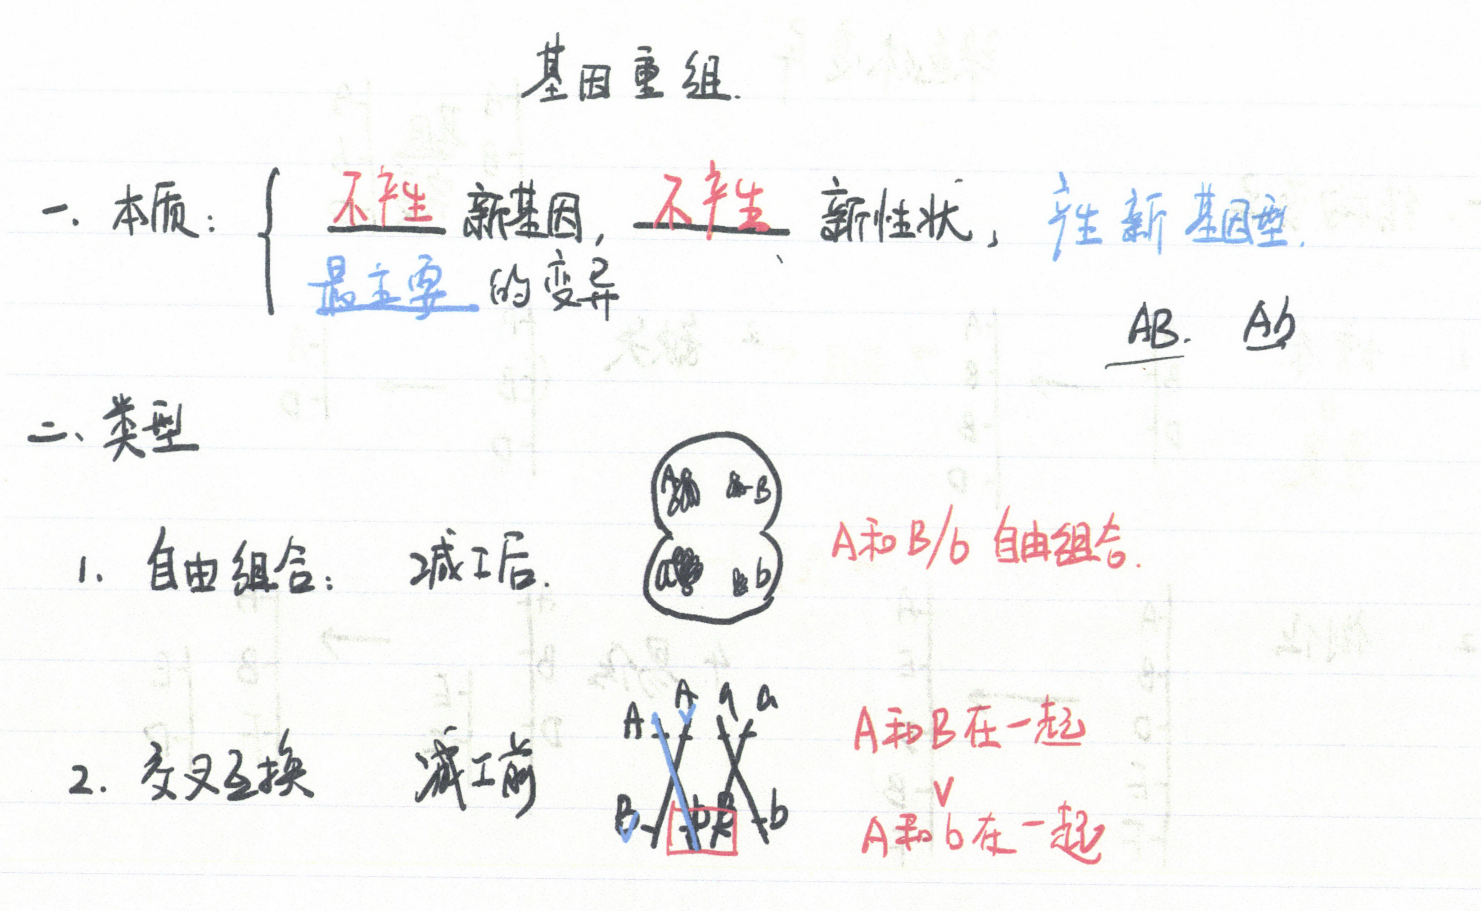 基因重组.
一、本质：不产生 新基因, 不产生 新性状, 产生新基因型.
最主要 的变异
AB. Ab
二、类型
A B
1. 自由组合： 减I后. A和B/b 自由组合.
a b
A A a a
2. 交叉互换 减I前 A和B在一起
B b B b
A和b在一起